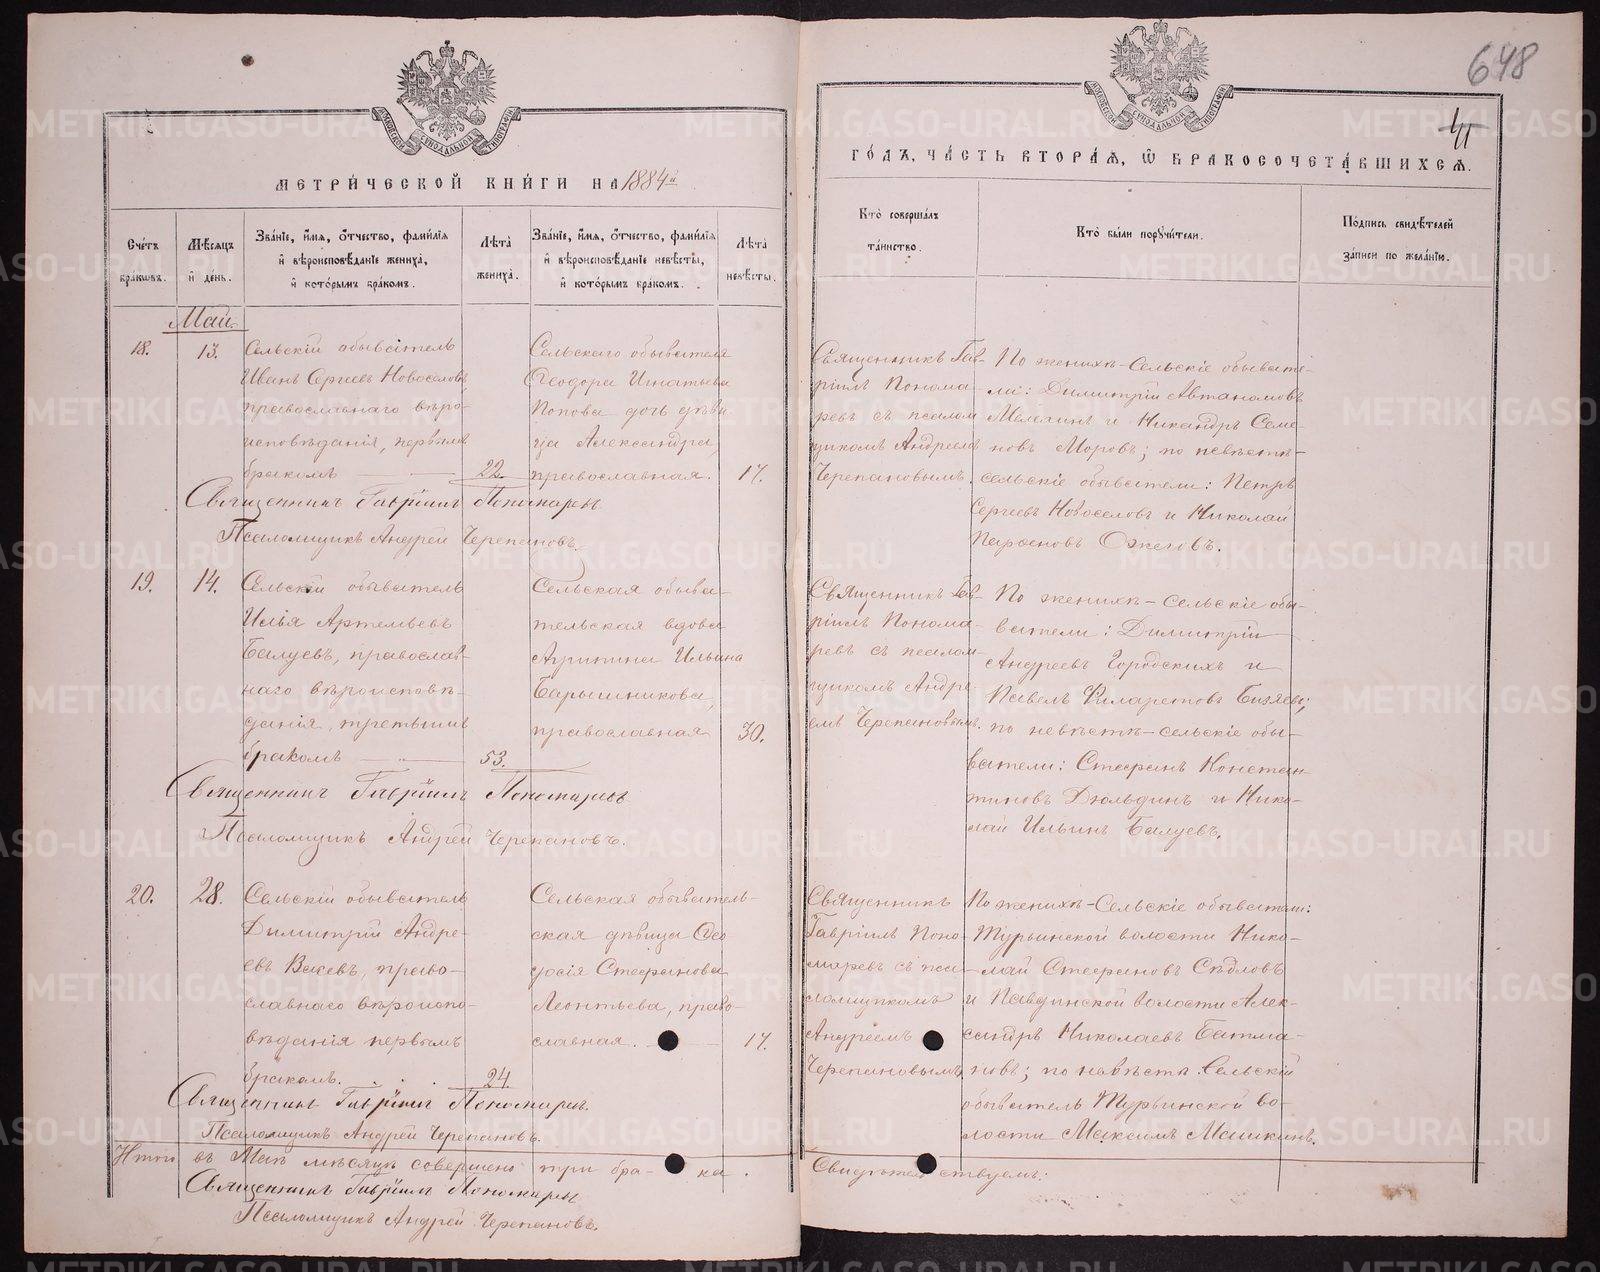 648
41
МЕТРИ́ЧЕСКОЙ КНИ́ГИ НА 1884й
ГО́ДЪ, ЧА́СТЬ ВТОРА́Ѧ, Ѽ БРАКОСОЧЕТА́ВШИХСѦ.
Сче́тъ бра́ковъ.
Мѣ́сяцъ и де́нь.
Зва́нїе, и́мя, ѻ́тчество, фами́лїя
и вѣроисповѣ́данїе жениха̀,
и кото́рымъ бра́комъ.
Лѣ́та жениха̀.
Зва́нїе, и́мя, ѻ́тчество, фами́лїя
и вѣроисповѣ́данїе невѣ́сты,
и кото́рымъ бра́комъ.
Лѣ́та невѣ́сты.
Кто̀ соверша́лъ
та́инство.
Кто̀ бы́ли поручи́тели.
По́дпись свидѣ́телей
за́писи по жела́нїю.
Май.
18.
13.
Сельскій обыватель
Иванъ Сергіевъ Новоселовъ
православнаго вѣро-
исповѣданія, первымъ
бракомъ
22.
Сельскаго обывателя
Ѳеодора Игнатьева
Попова дочь дѣви
ца Александра,
православная.
17.
Священникъ Гав-
ріилъ Понома-
ревъ съ псалом
щикомъ Андреемъ
Черепановымъ.
По женихѣ - сельскіе обывате-
ли: Димитрій Автономовъ
и Никандръ Семе-
новъ Моровъ; по невѣстѣ -
сельскіе обыватели: Петръ
Сергіевъ Новоселовъ и Николай
Парѳеновъ Ожеговъ.
Священникъ Гавріилъ Пономаревъ
Псаломщикъ Андрей Черепановъ.
19.
14.
Сельскій обыватель
Илья Артемьевъ
Балуевъ, православ-
наго вѣроисповѣ-
данія, третьимъ
бракомъ
53.
Сельская обыва-
тельская вдова
Агрипина Ильина
Барышникова,
православная
30.
Священникъ Гав-
ріилъ Понома-
ревъ съ псалом-
щикомъ Андре-
емъ Черепановымъ.
По женихѣ - сельскіе обы-
ватели: Димитрій
Андреевъ Городскихъ и
Павелъ Филаретовъ Бизяевъ;
по невѣстѣ - сельскіе обы-
ватели: Стефанъ Констан-
тиновъ Дюльдинъ и Нико-
лай Ильинъ Балуевъ.
Священникъ Гавріилъ Пономаревъ
Псаломщикъ Андрей Черепановъ.
20.
28.
Сельскій обыватель
Димитрій Андре-
евъ право-
славнаго вѣроиспо-
вѣданія первымъ
бракомъ.
24.
Сельская обыватель-
ская дѣвица Ѳео
досія Стефанова
Леонтьева, право-
славная.
17.
Священникъ
Гавріилъ Поно-
маревъ съ пса-
ломщикомъ
Андреемъ
Черепановымъ
По женихѣ - Сельскіе обыватели:
Турьинской волости Нико-
лай Стефановъ Сѣдловъ
и Павдинской волости Алек-
сандръ Николаевъ Батма-
новъ; по невѣстѣ: Сельскій
обыватель Турьинской во-
лости Максимъ Машкинъ.
Священникъ Гавріилъ Пономаревъ.
Псаломщикъ Андрей Черепановъ.
Итого въ Маѣ мѣсяцѣ совершено три бра- ка.
Свидѣтельствуемъ:
Священникъ Гавріилъ Пономаревъ
Псаломщикъ Андрей Черепановъ.
METRIKI.GASO-URAL.RU